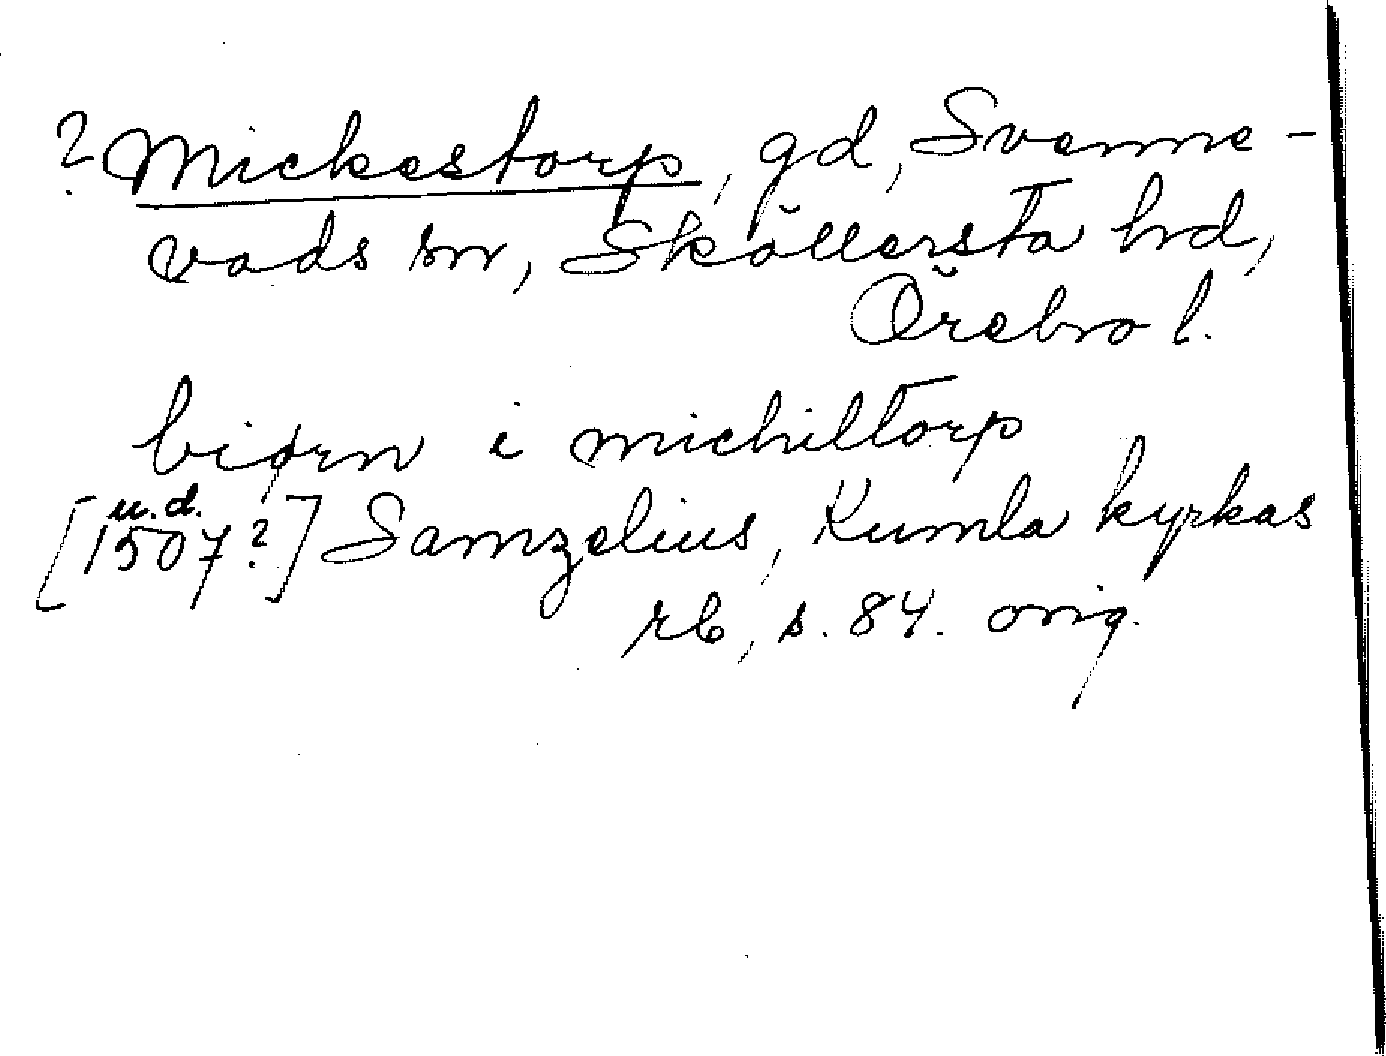 ? Mickestorp, gd, Svenne-
vads sn, Sköllersta hrd,
Örebro l.
biørn i michiltorp
[u.d. 1507?] Samzelius, Kumla kyrkas
rb, s. 84. orig.